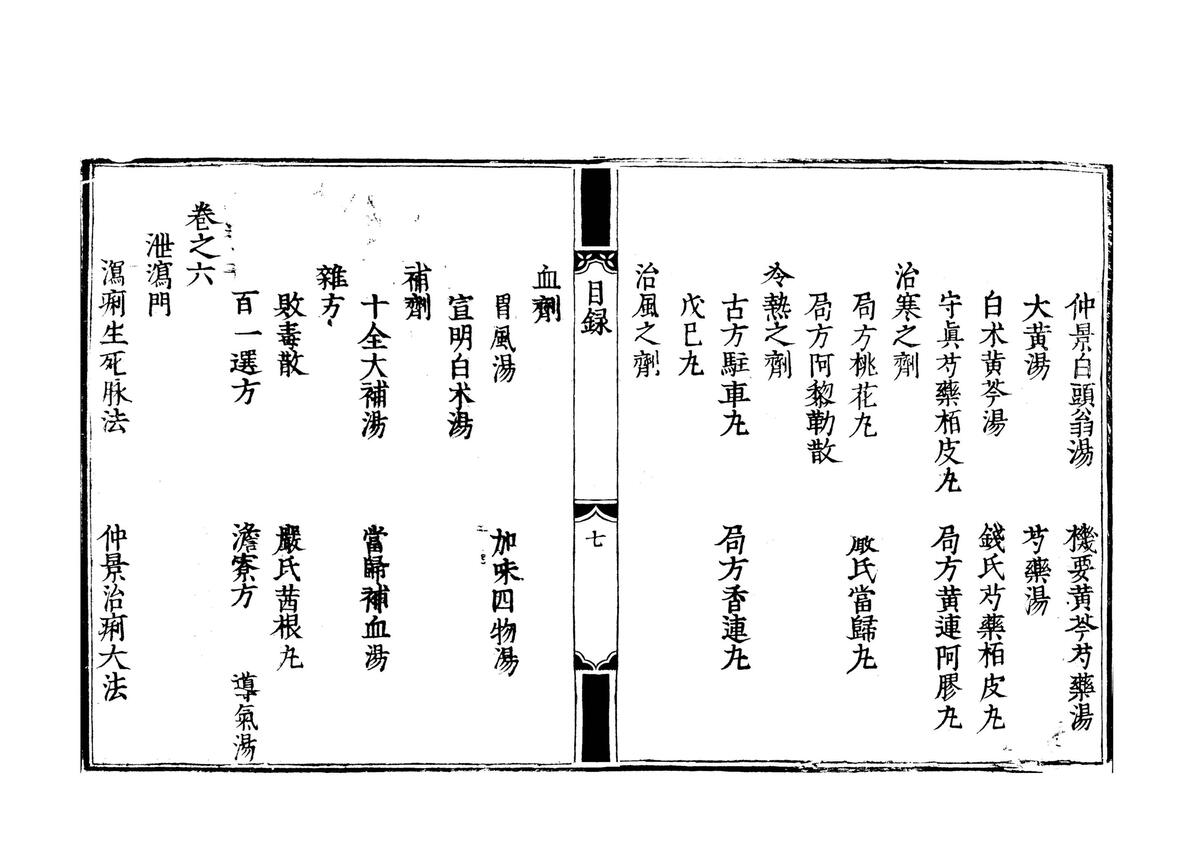 仲景白頭翁湯　機要黄芩芍藥湯
大黄湯　芍藥湯
白术黄芩湯　錢氏芍藥栢皮丸
守眞芍藥栢皮丸　局方黄連阿膠丸
治寒之劑
局方桃花丸　嚴氏當歸丸
局方阿黎勒散
冷熱之劑
古方駐車丸　局方香連丸
戊巳丸
治風之劑
目録
七
血劑
胃風湯　加味四物湯
宣明白术湯
補劑
十全大補湯　當歸補血湯
雜方
敗毒散　嚴氏茜根丸
百一選方　澹寮方　導氣湯
卷之六
泄瀉門
瀉痢生死脉法　仲景治痢大法